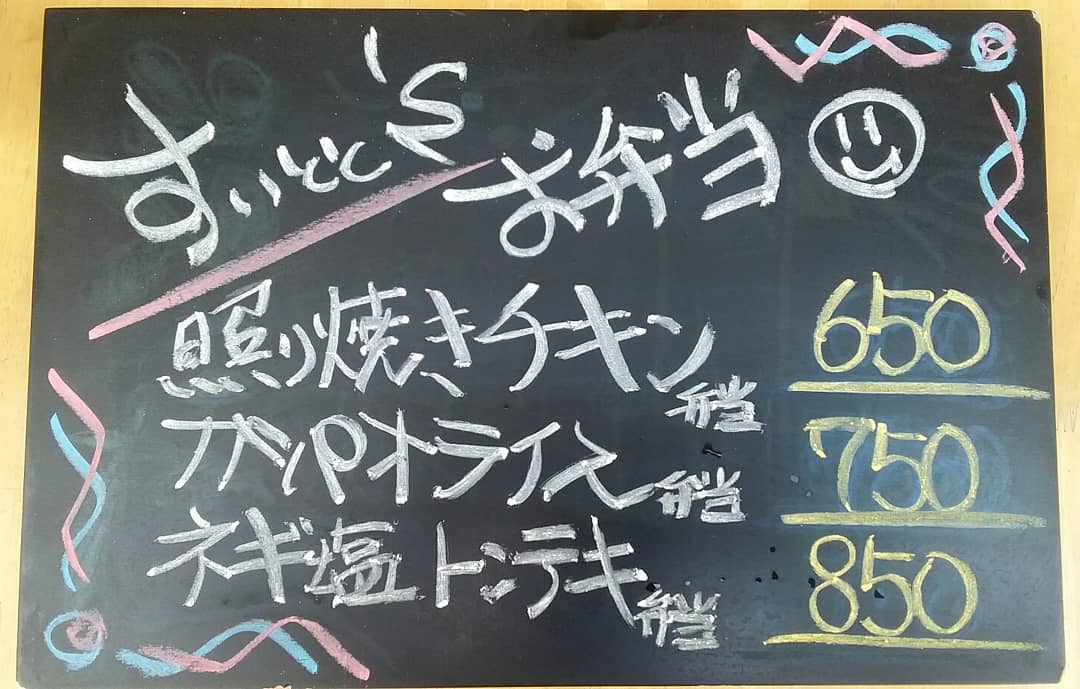 すぃとと'S お弁当
照り焼きチキン弁当 650
ガパオライス弁当 750
ネギ塩トンテキ弁当 850